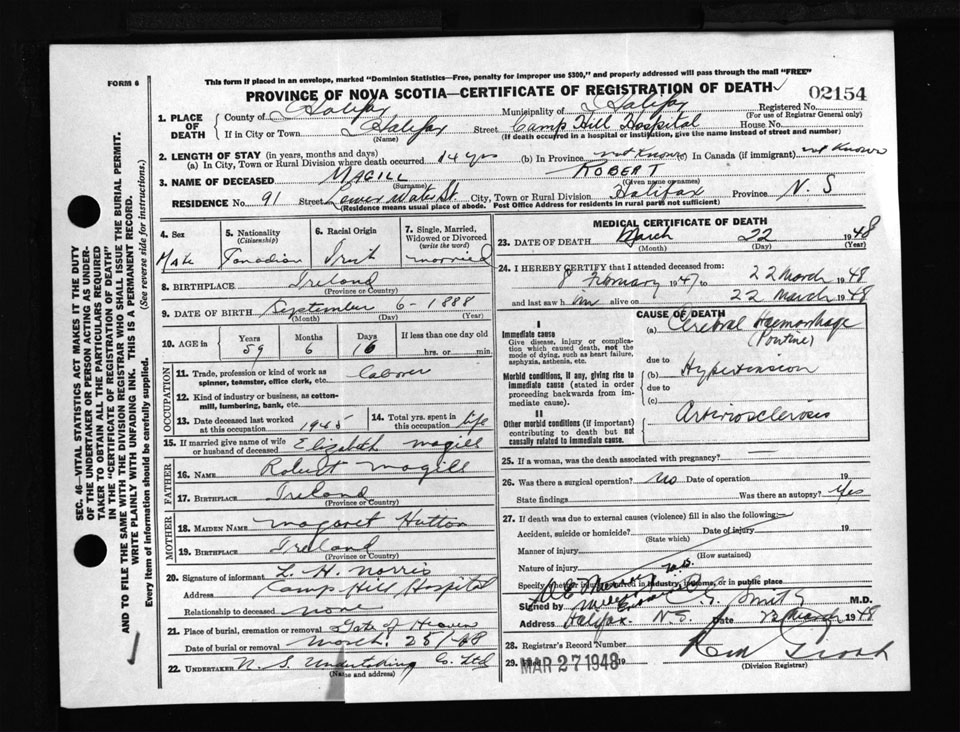 FORM 6
This form if placed in an envelope, marked "Dominion Statistics—Free, penalty for improper use $300," and properly addressed will pass through the mail "FREE"
PROVINCE OF NOVA SCOTIA—CERTIFICATE OF REGISTRATION OF DEATH
02154
1. PLACE OF DEATH
County of Halifax Municipality of Halifax Registered No.
(For use of Registrar General only)
If in City or Town Halifax Street Camp Hill Hospital House No.
(Name) (If death occurred in a hospital or institution, give the name instead of street and number)
2. LENGTH OF STAY (in years, months and days)
(a) In City, Town or Rural Division where death occurred 14 yrs (b) In Province not known (c) In Canada (if immigrant) not known
3. NAME OF DECEASED MAGILL ROBERT
(Surname) (Given name or names)
RESIDENCE No. 91 Street Lower Water St. City, Town or Rural Division Halifax Province N. S
(Residence means usual place of abode. Post Office Address for residents in rural parts not sufficient)
4. Sex Male
5. Nationality (Citizenship) Canadian
6. Racial Origin Irish
7. Single, Married, Widowed or Divorced (write the word) married
8. BIRTHPLACE Ireland
(Province or Country)
9. DATE OF BIRTH September 6 - 1888
(Month) (Day) (Year)
10. AGE in Years 59 Months 6 Days 16 If less than one day old hrs. or min.
OCCUPATION
11. Trade, profession or kind of work as spinner, teamster, office clerk, etc. laborer
12. Kind of industry or business, as cotton-mill, lumbering, bank, etc.
13. Date deceased last worked at this occupation 1945
14. Total yrs. spent in this occupation life
15. If married give name of wife or husband of deceased Elizabeth Magill
FATHER
16. NAME Robert Magill
17. BIRTHPLACE Ireland
(Province or Country)
MOTHER
18. MAIDEN NAME Magaret Hutton
19. BIRTHPLACE Ireland
(Province or Country)
20. Signature of informant L. H. Norris
Address Camp Hill Hospital
Relationship to deceased none
21. Place of burial, cremation or removal Gate of Heaven
Date of burial or removal March 25/48
22. UNDERTAKER N. S. Undertaking Co. Ltd
(Name and address)
MEDICAL CERTIFICATE OF DEATH
23. DATE OF DEATH March 22 1948
(Month) (Day) (Year)
24. I HEREBY CERTIFY that I attended deceased from:
8 February 1947 to 22 March 1948
and last saw him alive on 22 March 1948
CAUSE OF DEATH
I
Immediate cause
Give disease, injury or complication which caused death, not the mode of dying, such as heart failure, asphyxia, asthenia, etc.
Morbid conditions, if any, giving rise to immediate cause (stated in order proceeding backwards from immediate cause).
II
Other morbid conditions (if important) contributing to death but not causally related to immediate cause.
(a) Cerebral Haemorrhage
(Pontine)
due to
(b) Hypertension
due to
(c)
Arteriosclerosis
25. If a woman, was the death associated with pregnancy?
26. Was there a surgical operation? No Date of operation 19
State findings Was there an autopsy? Yes
27. If death was due to external causes (violence) fill in also the following:—
Accident, suicide or homicide? Date of injury 19
(State which)
Manner of injury
(How sustained)
Nature of injury
Specify whether injury occurred in industry, in home, or in public place
Signed by Smith M.D.
Address Halifax. N.S. Date March 1948
28. Registrar's Record Number
29. MAR 27 1948 19
(Division Registrar)
SEC. 46—VITAL STATISTICS ACT MAKES IT THE DUTY
OF THE UNDERTAKER OR PERSON ACTING AS UNDERTAKER TO OBTAIN ALL THE PARTICULARS REQUIRED
IN THE "CERTIFICATE OF REGISTRATION OF DEATH"
AND TO FILE THE SAME WITH THE DIVISION REGISTRAR WHO SHALL ISSUE THE BURIAL PERMIT.
WRITE PLAINLY WITH UNFADING INK. THIS IS A PERMANENT RECORD.
Every item of information should be carefully supplied. (See reverse side for instructions.)